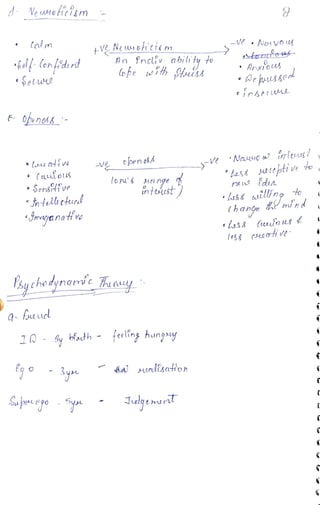 d- Neuroticism :-
• Calm
• Self-Confident
• Secure
+ve Neuroticism -ve
An Indiv ability to
Cope with Stress
• Nervous
• Anxious
• Depressed
• Insecure
e- Openness :-
• Creative
• Curious
• Sensitive
• Intellectual
• Imaginative
-ve openness -ve
(one's range of
interest)
• Narrow interest
• Less susceptive to
new idea
• Less willing to
change the mind
• less Curious &
less creative
Psychodynamic Theory :-
a- Freud
ID - By birth - feeling hungry
Ego - 3yr - realisation
Superego - 5yr - Judgement